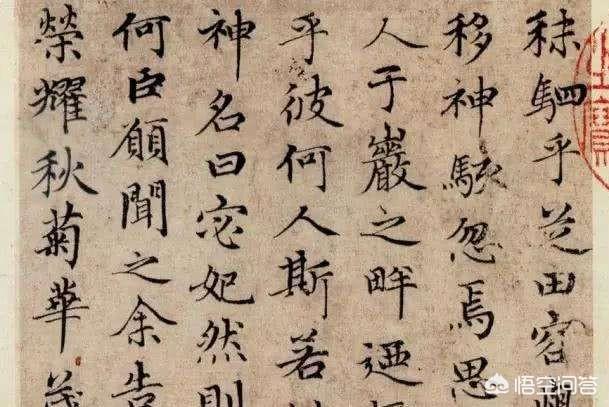 秣駟乎芝田容與
移神駭忽焉思
人于巖之畔迺
乎彼何人斯若
神名曰宓妃然則
何臣願聞之余告
榮耀秋菊華茂
悟空问答